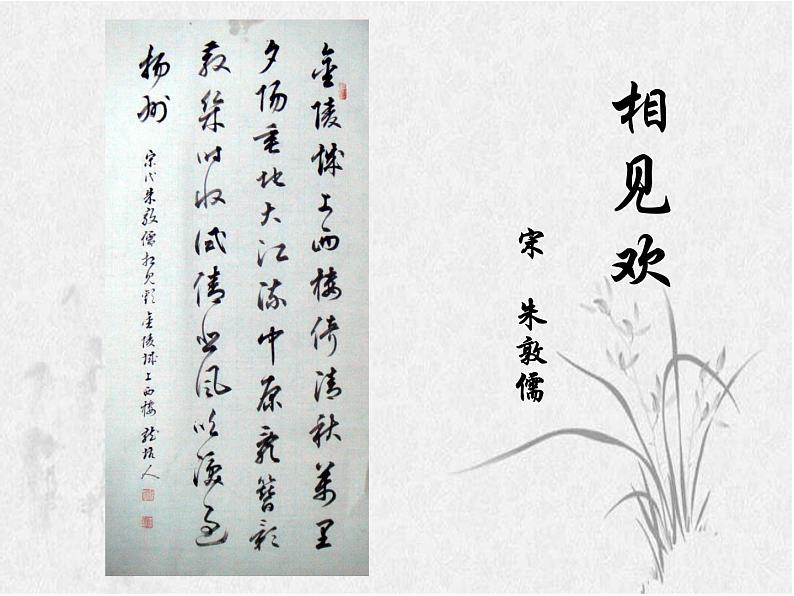 相见欢
宋 朱敦儒
金陵城上西楼倚清秋萬里
夕阳垂地大江流中原乱簪
散几时收试倩悲风吹泪过
扬州
宋代朱敦儒相见欢金陵城上西楼